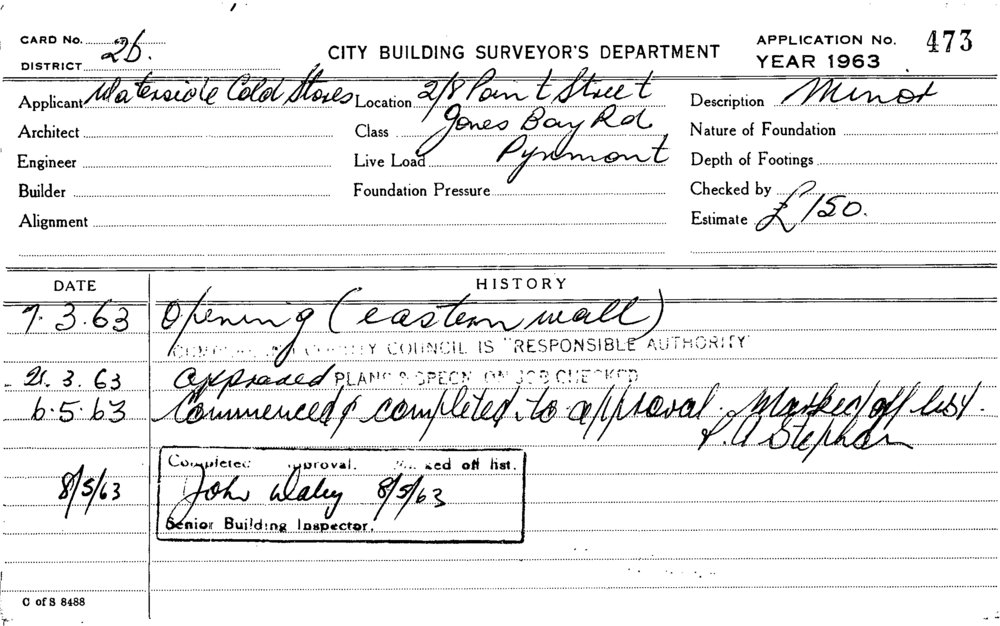 CARD No.
DISTRICT 2b.
CITY BUILDING SURVEYOR'S DEPARTMENT
APPLICATION No. 473
YEAR 1963
Applicant Waterside Cold Stores Location 2/8 Point Street Description Minor
Architect Class Jones Bay Rd. Nature of Foundation
Engineer Live Load Pyrmont Depth of Footings
Builder Foundation Pressure Checked by
Alignment Estimate £150.
DATE HISTORY
7.3.63 Opening (eastern wall)
COUNTY COUNCIL IS "RESPONSIBLE AUTHORITY"
21.3.63 approved PLANS & SPECN ON JOB CHECKED
6.5.63 Commenced & completed to approval. Marked off list.
Stephan
Completed approval. Marked off list.
8/5/63 John 8/5/63
Senior Building Inspector.
C of S 8488